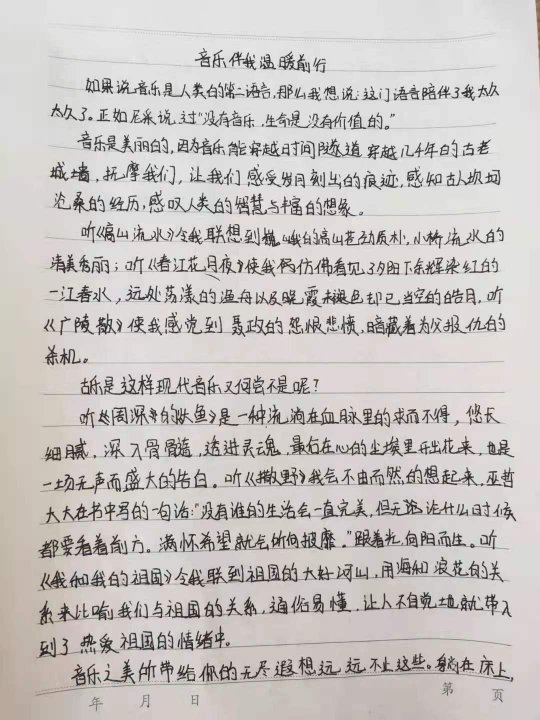 音乐伴我温暖前行
如果说音乐是人类的第二语言，那么我想说：这门语言陪伴了我太久
太久了。正如尼采说过"没有音乐，生命是没有价值的。"
音乐是美丽的，因为音乐能穿越时间隧道穿越几千年的古老
城墙，抚摩我们，让我们感受岁月刻出的痕迹，感知古人坎坷
沧桑的经历，感叹人类的智慧与丰富的想象。
听《高山流水》令我联想到巍峨的高山苍劲质朴，小桥流水的
清美秀丽；听《春江花月夜》使我仿佛看见了夕阳下余辉染红的
一江春水，远处荡漾的渔舟以及晚霞未褪色却已当空的皓月，听
《广陵散》使我感觉到聂政的怨恨悲愤，暗藏着为父报仇的
杀机。
古乐是这样现代音乐又何尝不是呢？
听《周深》的《大鱼》是一种流淌在血脉里的求而不得，悠长
细腻，深入骨骨髓，透进灵魂，最后在心的尘埃里开出花来，也是
一场无声而盛大的告白。听《撒野》我会不由而然的想起来，巫哲
大大在书中写的一句话："没有谁的生活会一直完美，但无论什么时候
都要看着前方。满怀希望就会所向披靡。"跟着光，向阳而生。听
《我和我的祖国》令我联到祖国的大好河山，用海和浪花的关
系来比喻我们与祖国的关系，通俗易懂，让人不自觉地就带入
到了热爱祖国的情绪中。
音乐之美所带给你的无尽遐想远远不止这些。躺在床上，
年 月 日
第 页